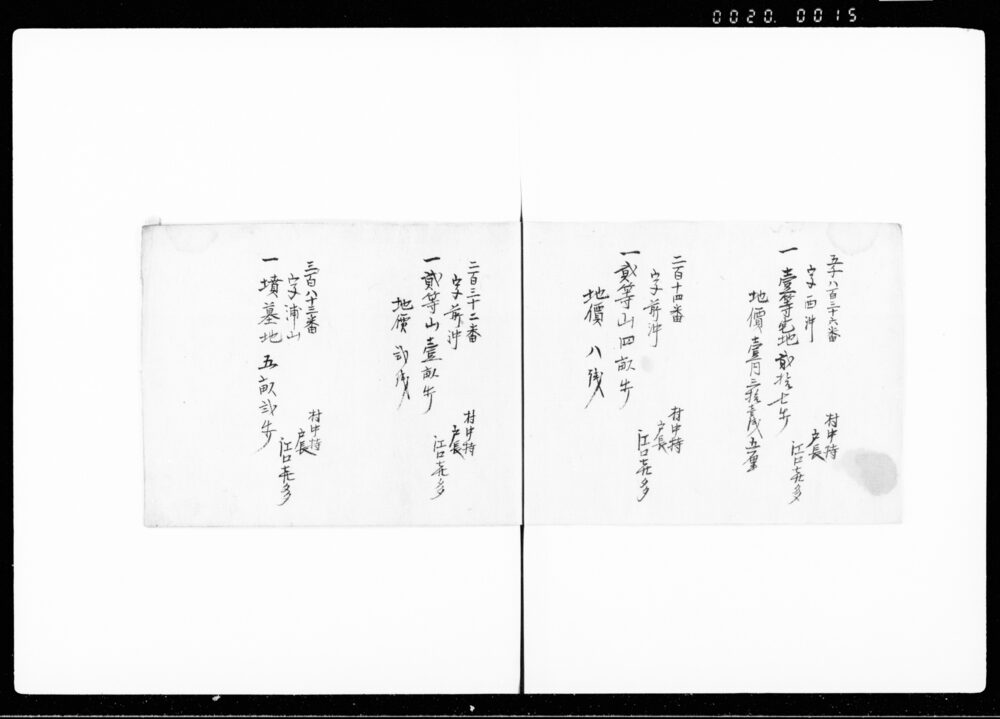 0020. 0015
五千八百三十六番
字西沖
一 壹等宅地 貳拾七歩
地價 壹円三拾壹銭五厘
村中持
戸長
江口㐂多
二百十四番
字前沖
一 貳等山 四畝歩
地價 八銭
村中持
戸長
江口㐂多
二百三十二番
字前沖
一 貳等山 壹畝歩
地價 弐銭
村中持
戸長
江口㐂多
三百八十三番
字浦山
一 墳墓地 五畝弐歩
村中持
戸長
江口㐂多